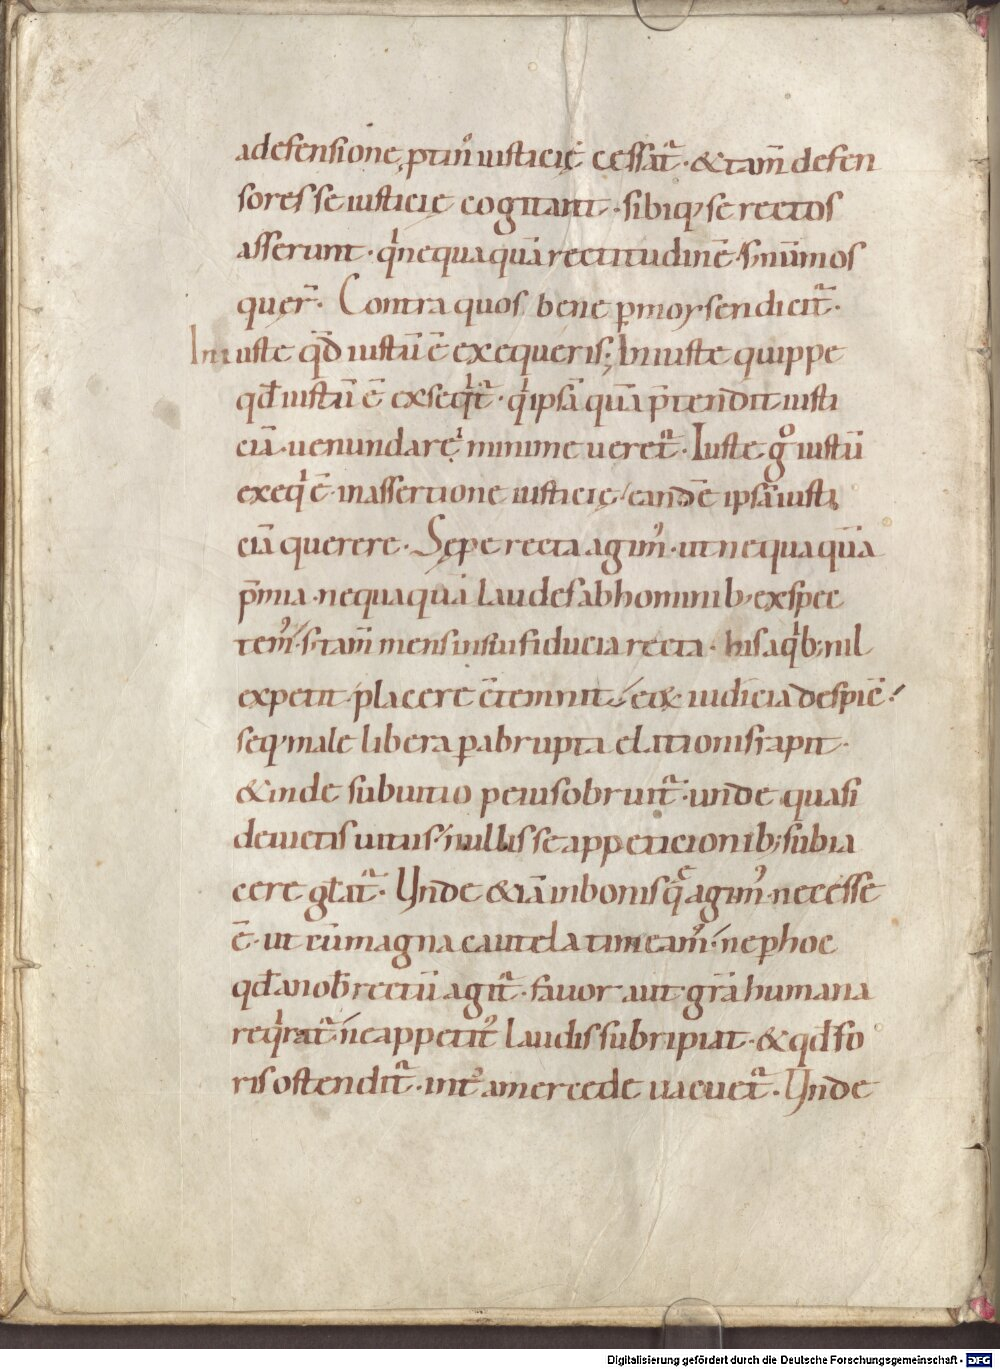 adefensione, ptin᷒ iusticię cessat᷑ · &tam̅ defen
sores se iusticię cogitant · sibiq; se rectos
asserunt · qͥnequaquā rectitudinē · s; nummos
quer̅ · Contra quos bene p̱moysen dicit᷑ ·
Iniuste qd̄ iustū ē exequeris; Iniuste quippe
qđ iustū ē exseqͥt᷑ · qͥ ipsā quā p̄tendit iusti
ciā · uenundarę minime ueret᷑ · Iuste gͦ iustū
exeqͥ ē · inassertione iusticię · eandē ipsā iusti
ciā querere · Sępe recta agim᷒ · ut nequaquā
p̄mia · nequaquā laudes abhominib; exspec
tem᷒ · s; tam̅ mens insui fiducia recta · his aqͥb; nil
expetit · placere c̄temnit · eor̨ iudicia despic̄ ·
seq; male libera p̱abrupta elationis rapit ·
&inde subuitio peius obruit᷑ · unde quasi
deuictis uitiis · nullis se appeticionib; subia
cere gl̄at᷑ · Unde &iā inbonis q̄ agim᷒ · necesse
ē · ut cū magna cautela timeam᷒ · ne p̱ hoc
qđ anob̄ rectū agit᷑ · fauor aut gr̄a humana
reqͥrat᷑ · ne appetit᷒ laudis subripiat · &qđ fo
ris ostendit᷑ · int᷒ amercede uacuet᷑ · Unde
Digitalisierung gefördert durch die Deutsche Forschungsgemeinschaft - DFG